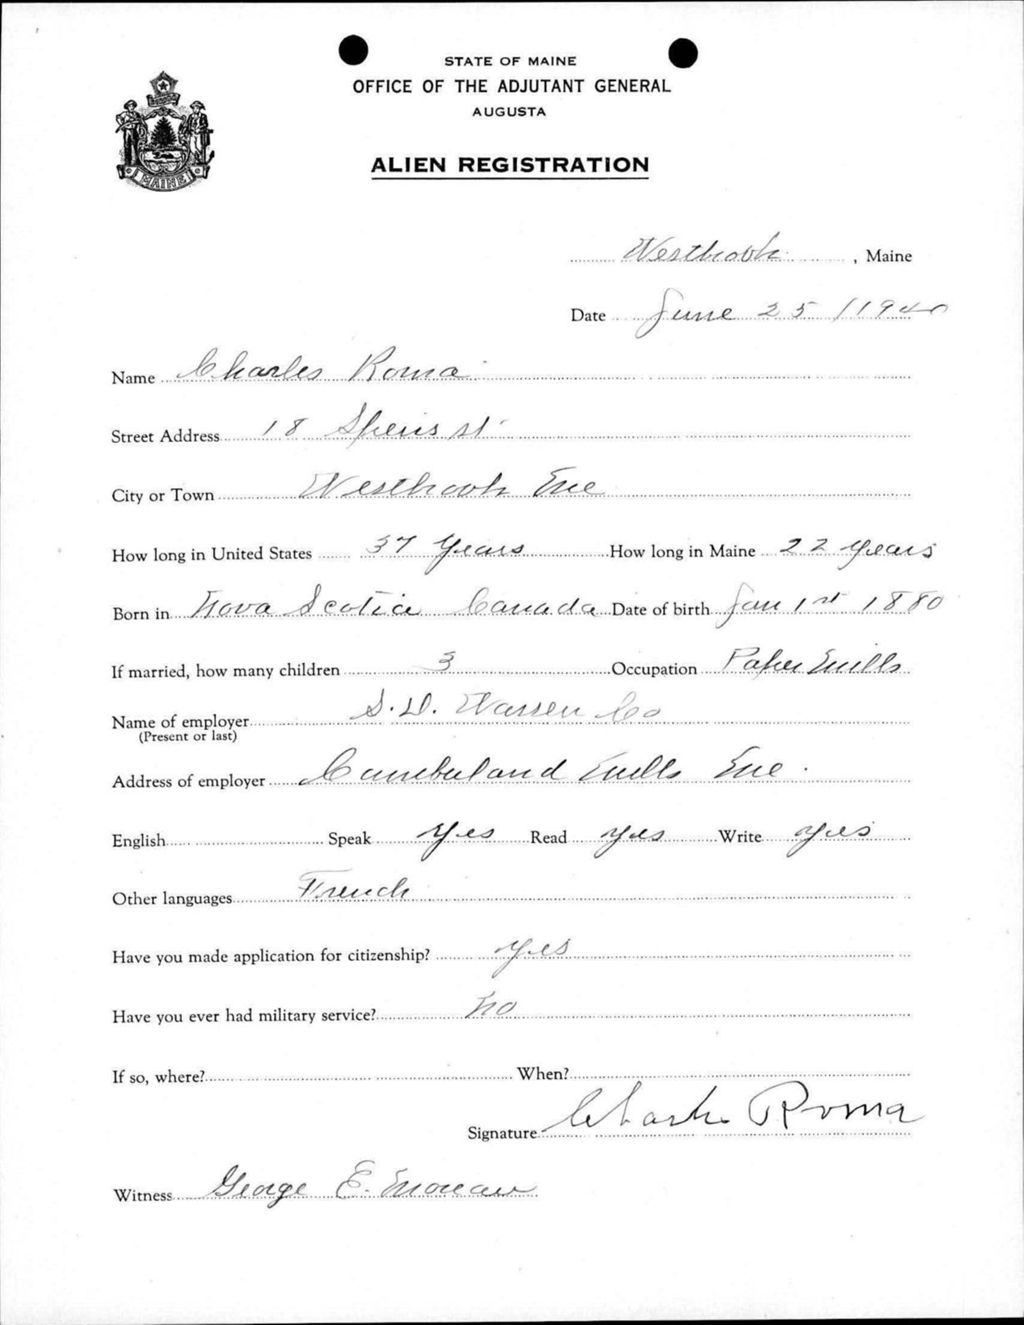 STATE OF MAINE
OFFICE OF THE ADJUTANT GENERAL
AUGUSTA
ALIEN REGISTRATION
MAINE
Westbrook, Maine
Date June 25 / 1940
Name Charles Roma
Street Address 18 Speirs st
City or Town Westbrook Me
How long in United States 37 Years How long in Maine 22 years
Born in Nova Scotia Canada Date of birth Jan 1st 1880
If married, how many children 3 Occupation Paper Mills
Name of employer S. D. Warren Co
(Present or last)
Address of employer Cumberland Mills Me.
English Speak Yes Read yes Write yes
Other languages French
Have you made application for citizenship? yes
Have you ever had military service? no
If so, where? When?
Signature Charles Roma
Witness George E. Moreau